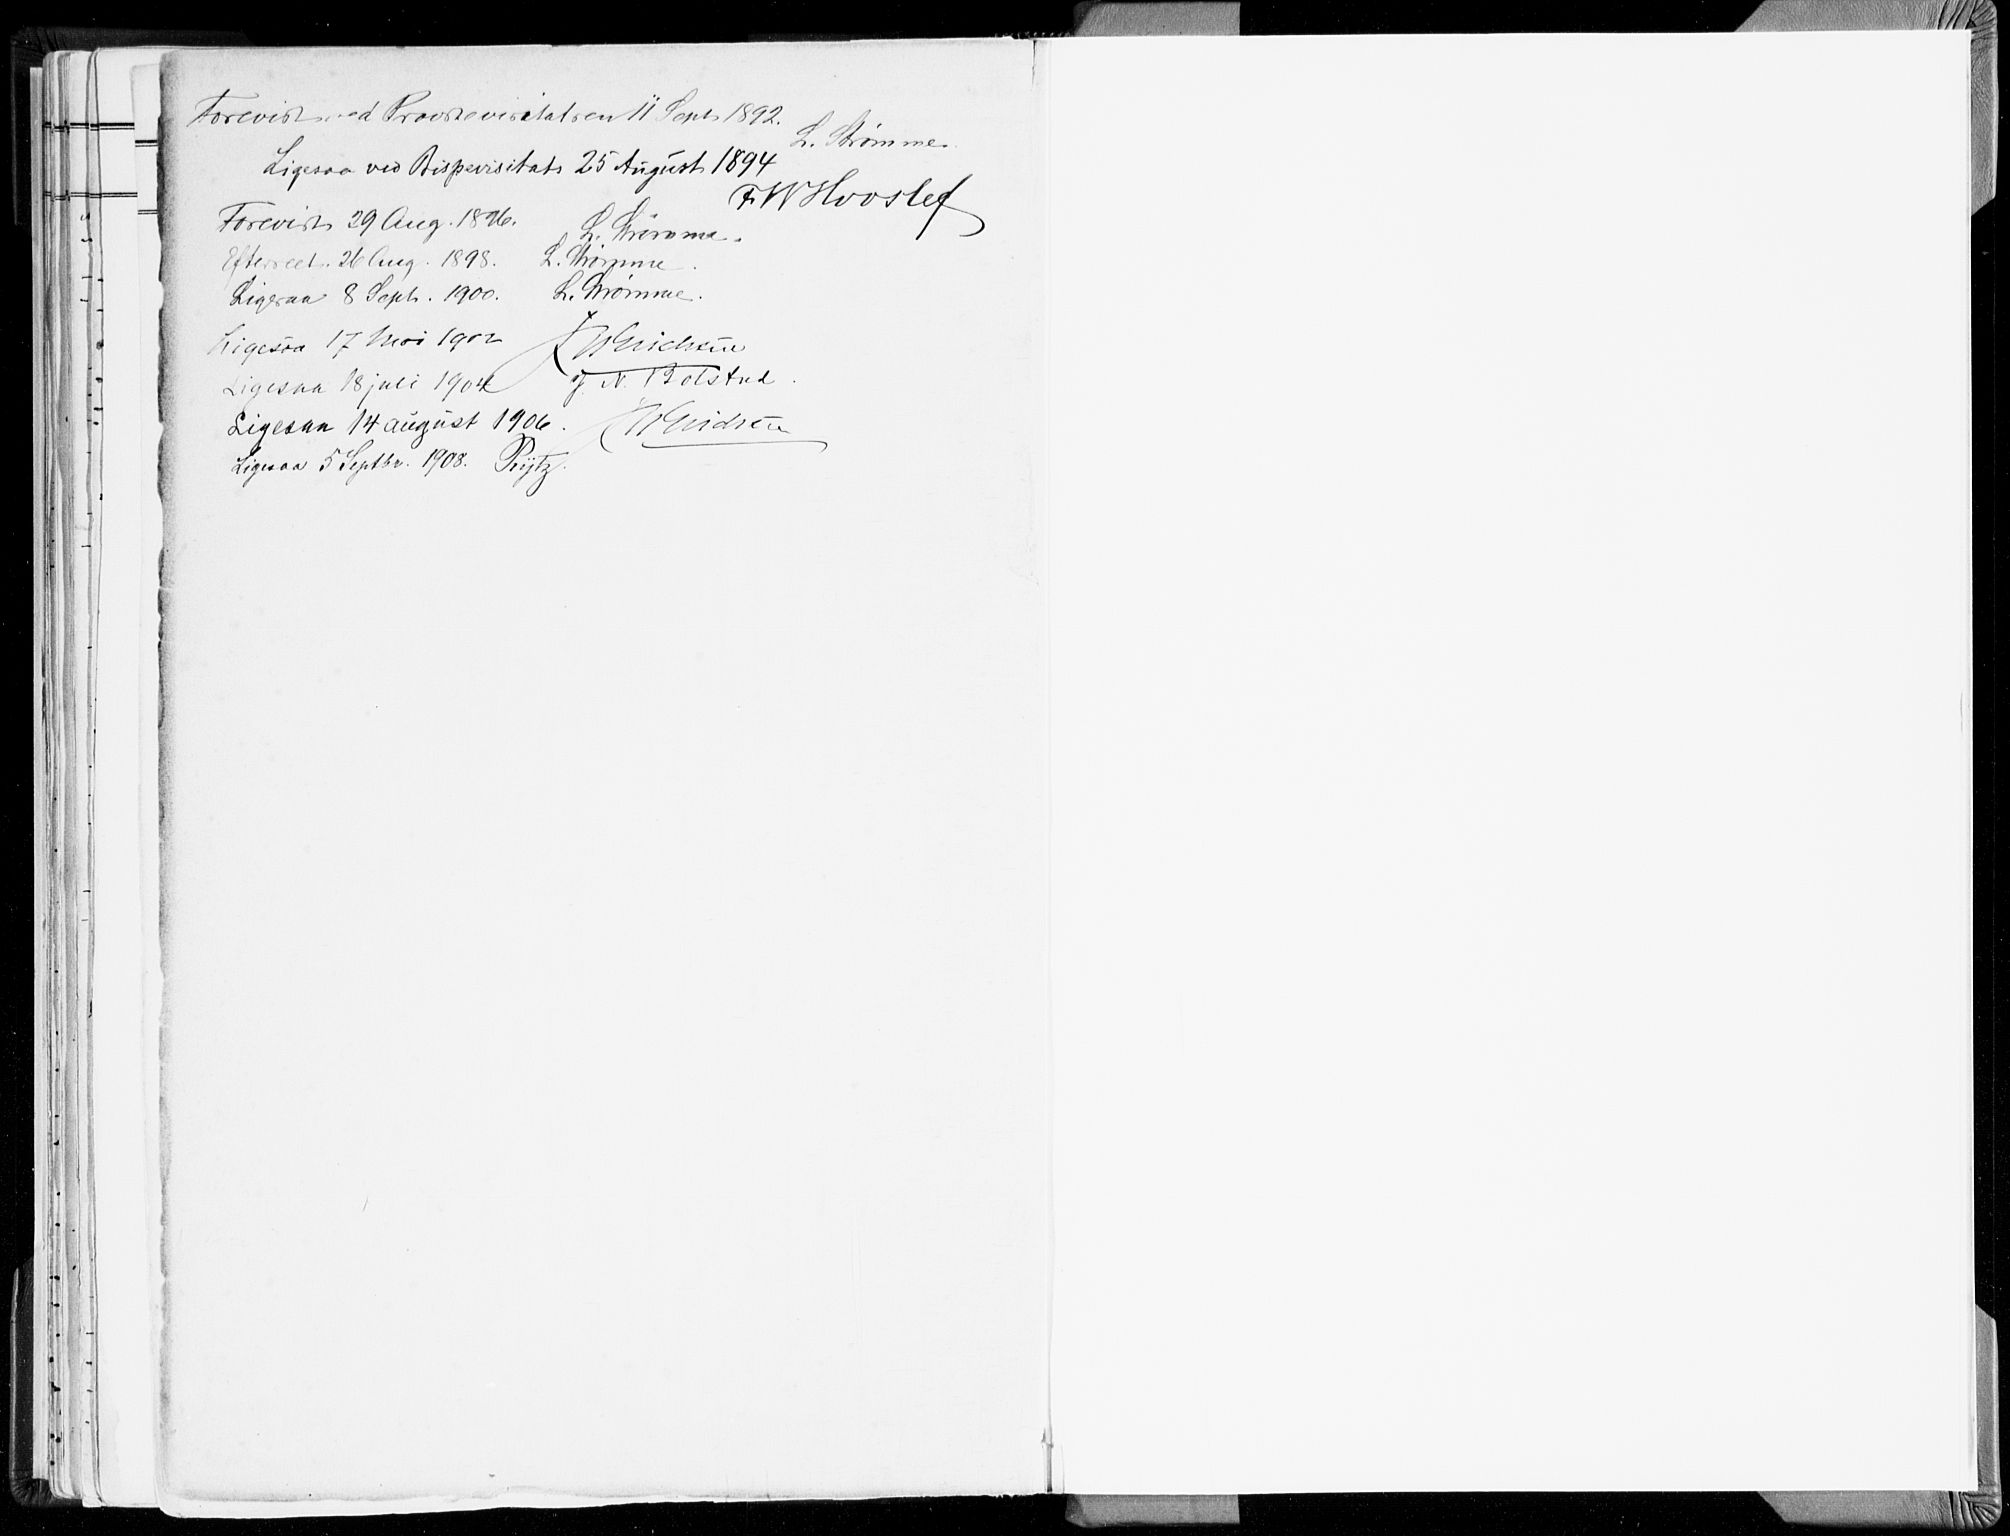 Forevist ved Provstevisitatsen 11 Sept 1892.
L. Strømme.
Ligesaa ved Bispevisitats 25 August 1894
F W Hvoslef
Forevist 29 Aug. 1896. L. Strømme.
Efterseet. 26 Aug. 1898. L. Strømme.
Ligesaa 8 Sept. 1900. L. Strømme.
Ligesaa 17 Mai 1902
Ligesaa 18 juli 1904 N. Bolstad.
Ligesaa 14 august 1906.
Ligesaa 5 Septbr. 1908. Rytz.